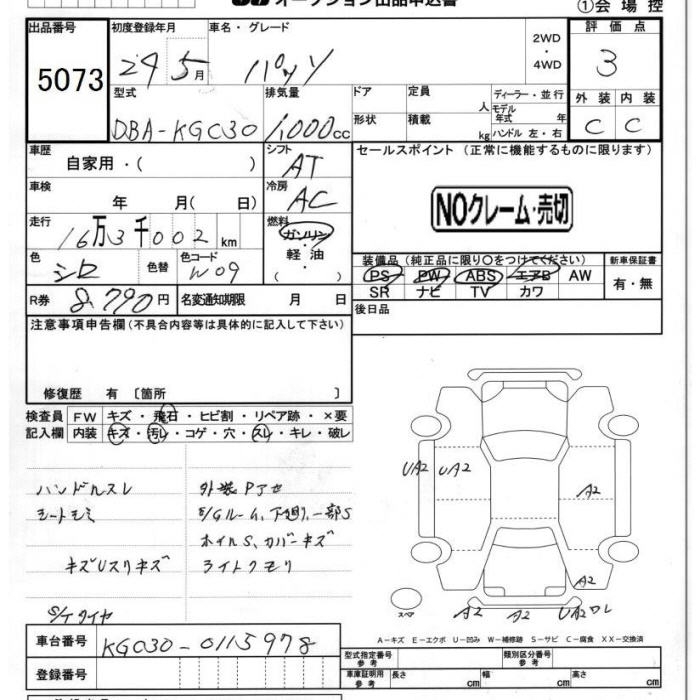 オークション出品申込書
①会場控
出品番号 初度登録年月 車名・グレード 評価点
5073
29 5月 パッソ 2WD・4WD 3
型式 排気量 ドア 定員 人 ディーラー・並行 外装 内装
DBA-KGC30 1,000cc 形状 積載 kg モデル年式 年 ハンドル 左・右 C C
車歴 シフト セールスポイント (正常に機能するものに限ります)
自家用・( ) AT
車検 冷房
年 月( 日) AC NOクレーム・売切
走行 燃料
16万3千002km ガソリン・軽油・( )
色 色替 色コード 装備品(純正品に限り○をつけてください) 新車保証書
シロ W09 PS PW ABS エアB AW 有・無
SR ナビ TV カワ
R券 8,790円 名変通知期限 月 日 後日品
注意事項申告欄(不具合内容等は具体的に記入して下さい)
修復歴 有 〔箇所 〕
検査員 FW キズ・飛石・ヒビ割・リペア跡・×要
記入欄 内装 キズ・汚レ・コゲ・穴・スレ・キレ・破レ
ハンドルスレ 外装Pアセ
シートモミ E/Gルーム、下廻り、一部S
ホイルS、カバーキズ
キズUスリキズ ライトクモリ
S/Tタイヤ
UA2 UA2 A2
A2
スペア A2 A2 UA2ワレ
A-キズ E-エクボ U-凹み W-補修跡 S-サビ C-腐食 XX-交換済
車台番号 KGC30-0115978
型式指定番号 参考 類別区分番号 参考
登録番号 車庫証明用 参考 長さ cm 幅 cm 高さ cm